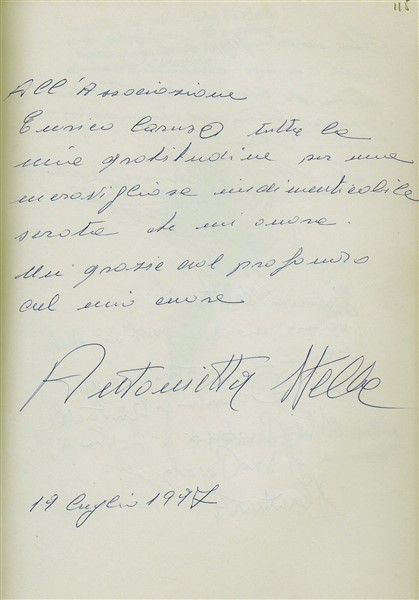 115
All'Associazione
Enrico Caruso tutta la
mia gratitudine per una
meravigliosa indimenticabile
serata che mi onora.
Un grazie dal profondo
del mio cuore
Antonietta Stella
19 luglio 1997